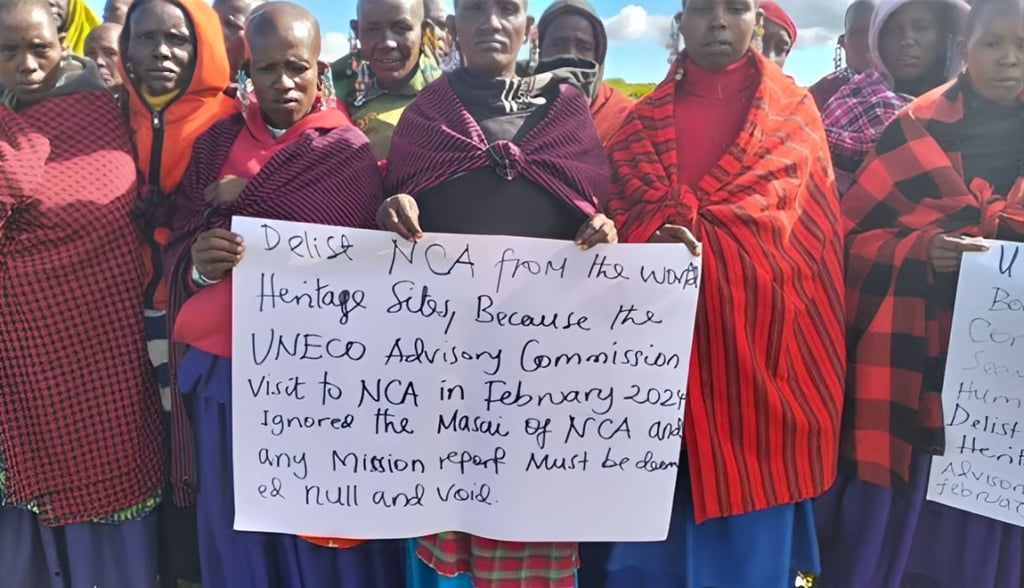 Delist NCA from the World
Heritage Sites, Because the
UNECO Advisory Commission
Visit to NCA in February 2024
Ignored the Masai of NCA and
any Mission report Must be deem
ed null and void.
U
Bo
Con
See
Hum
Delist
Herit
Advisor
februa